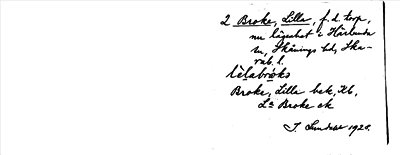 2 Broke, Lilla, f. d. torp,
nu lägenhet i Härlunda
sn, Skånings hd, Ska-
rab. l.
lèlabròks
Broke, Lilla bek, Kb,
La Broke ek
J. Lundahl 1925.